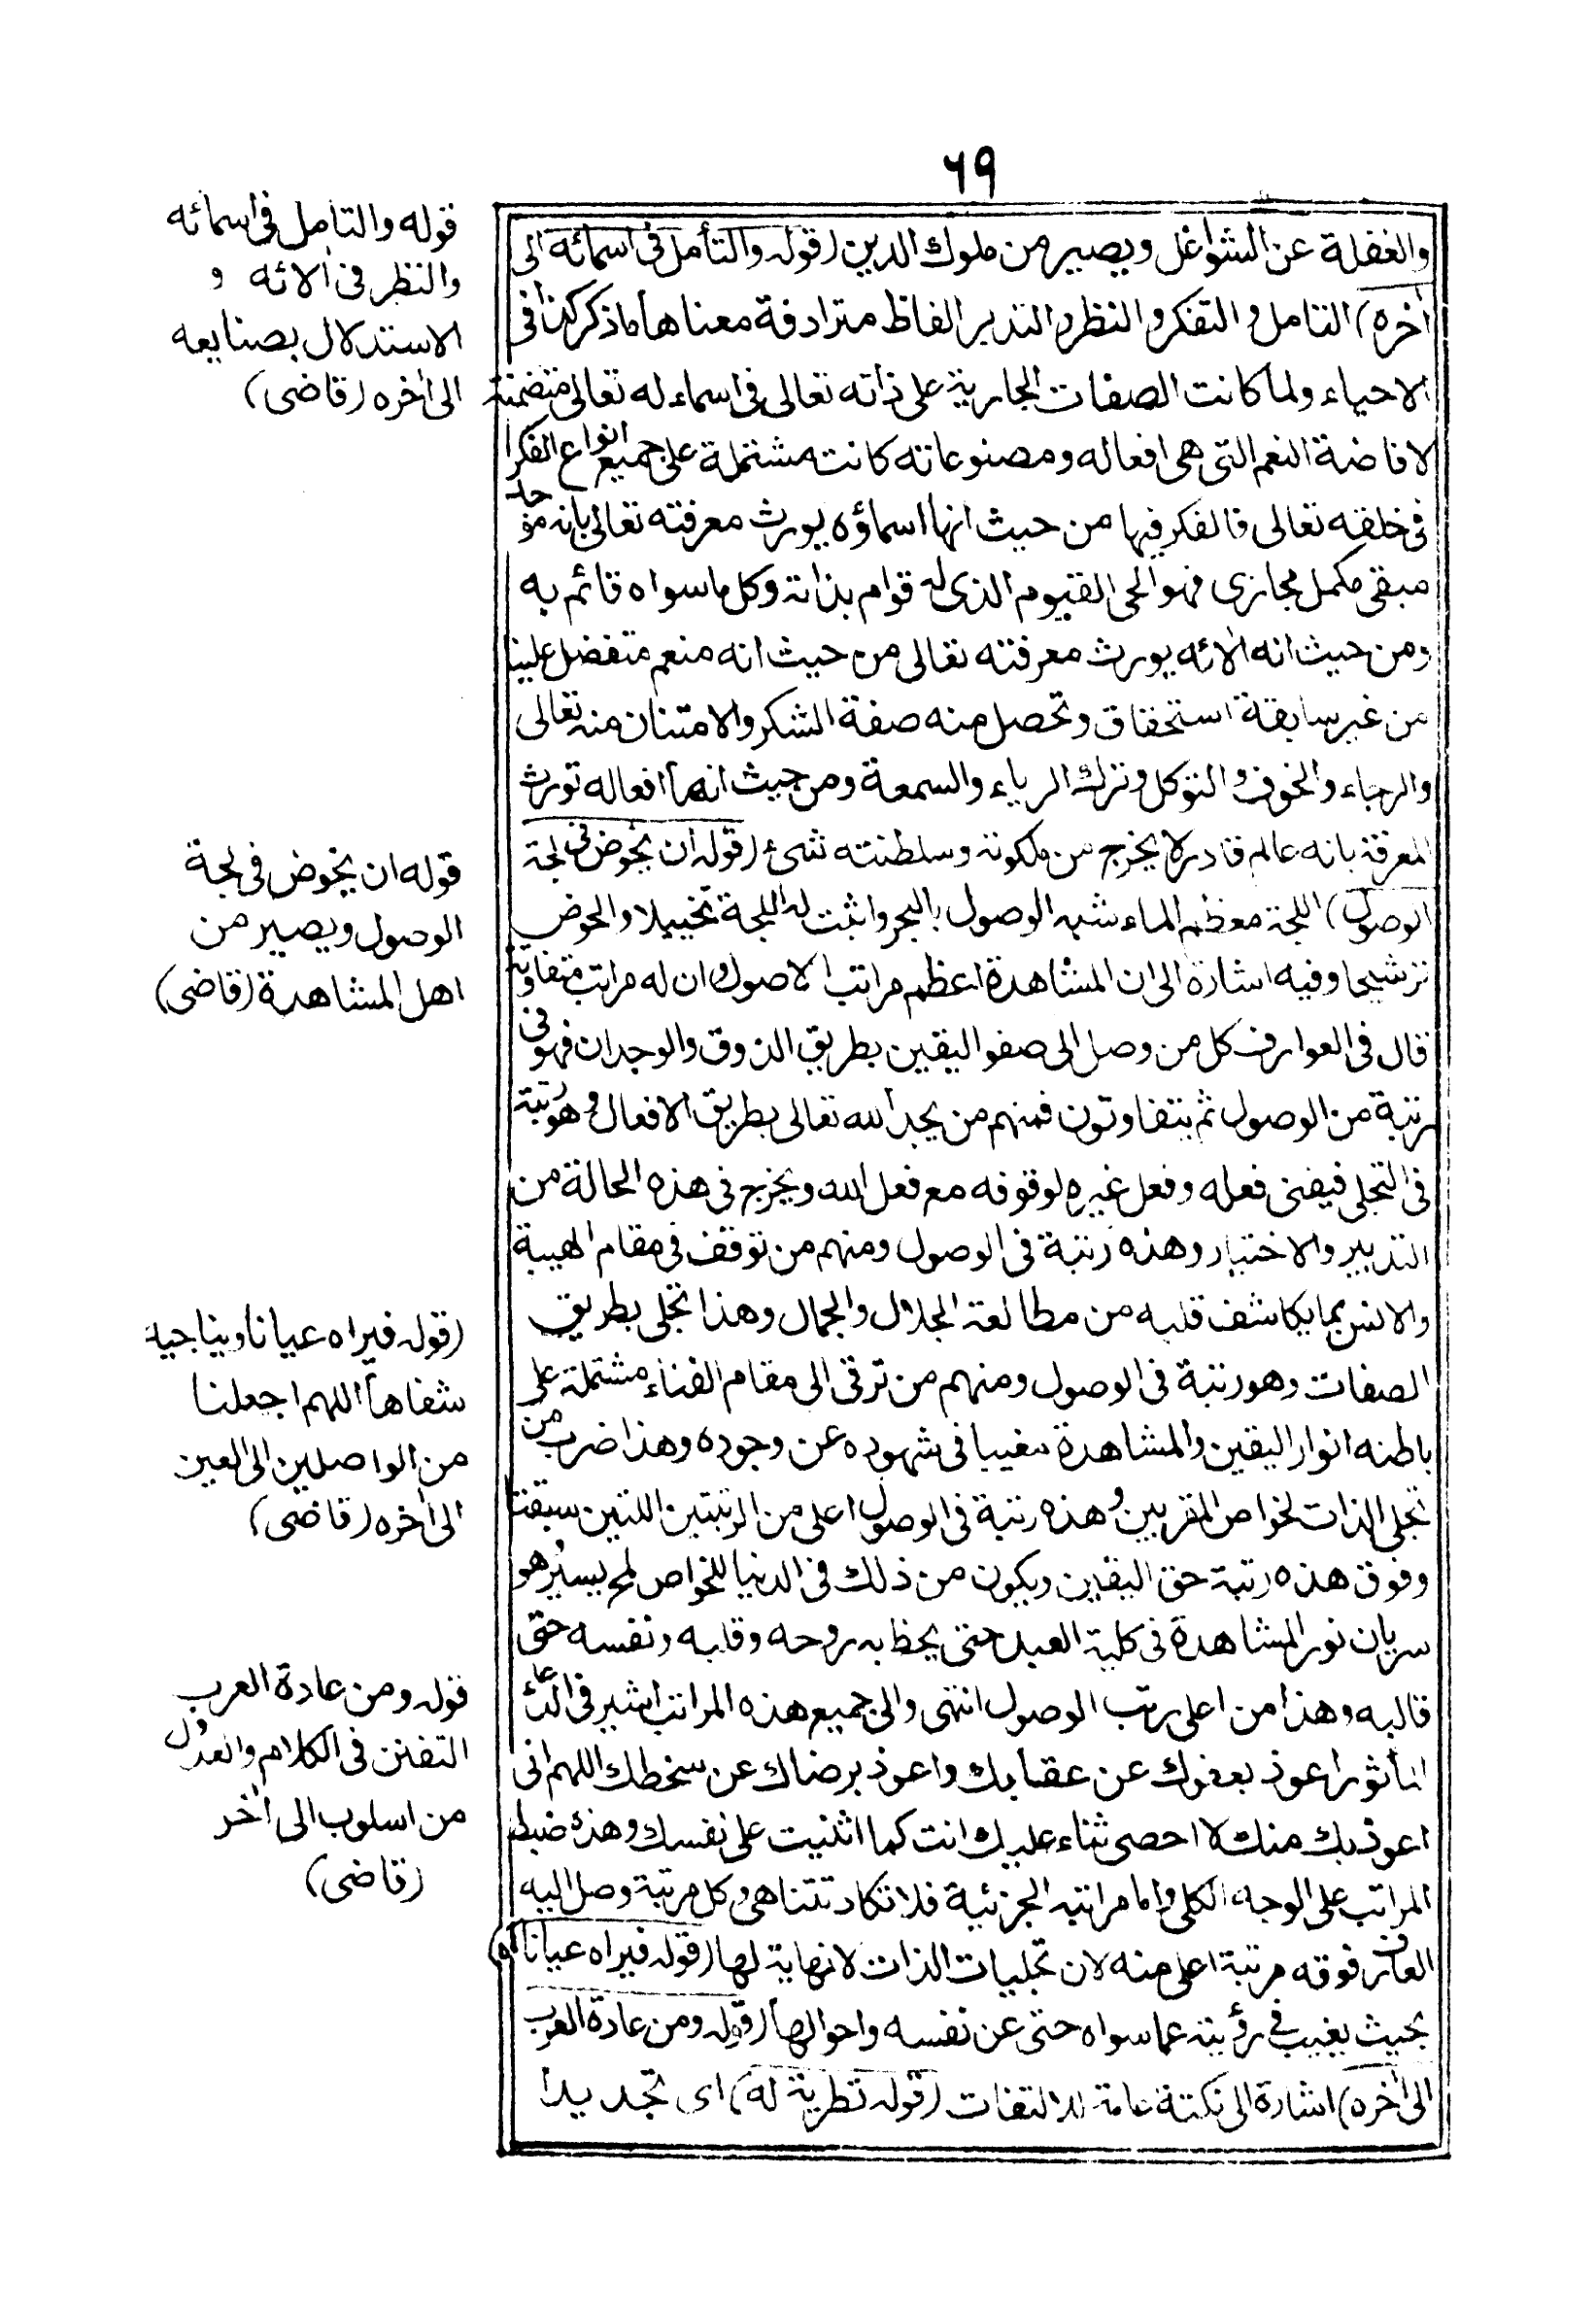 ٦٩
والغفلة عن الشواغل ويصير من ملوك الدين (قوله والتأمل فى اسمائه الى
اخره) التامل والتفكر والنظر والتدبر الفاظ مترادفة معناها ما ذكر كذا فى
الاحياء ولما كانت الصفات الجارية على ذاته تعالى فى اسماء له تعالى متضمنة
لافاضة النعم التى هى افعاله ومصنوعاته كانت مشتملة على جميع انواع الفكر
فى خلقه تعالى فالفكر فيها من حيث انها اسماؤه يورث معرفته تعالى بانه موجد
مبقى مكمل مجازى فهو الحى القيوم الذى له قوام بذاته وكل ما سواه قائم به
ومن حيث انه الائه يورث معرفته تعالى من حيث انه منعم متفضل علينا
من غير سابقة استحقاق وتحصل منه صفة الشكر والامتنان منه تعالى
والرجاء والخوف والتوكل وترك الرياء والسمعة ومن حيث انها افعاله تورث
المعرفة بانه عالم قادر لا يخرج من ملكوته وسلطنته شئ (قوله ان يخوض فى لجة
الوصول) اللجة معظم الماء شبه الوصول بالبحر واثبت له اللجة تخييلا والخوض
ترشيحا وفيه اشارة الى ان المشاهدة اعظم مراتب الاصول وان له مراتب متفاوتة
قال فى العوارف كل من وصل الى صفو اليقين بطريق الذوق والوجدان فهو فى
رتبة من الوصول ثم يتفاوتون فمنهم من يجد الله تعالى بطريق الافعال وهو رتبة
فى التجلى فيفنى فعله وفعل غيره لوقوفه مع فعل الله ويخرج فى هذه الحالة من
التدبير والاختيار وهذه رتبة فى الوصول ومنهم من توقف فى مقام الهيبة
والانس بما يكاشف قلبه من مطالعة الجلال والجمال وهذا تجلى بطريق
الصفات وهو رتبة فى الوصول ومنهم من ترقى الى مقام الفناء مشتملة على
باطنه انوار اليقين والمشاهدة مغيبا فى شهوده عن وجوده وهذا ضرب من
تجلى الذات لخواص المقربين وهذه رتبة فى الوصول اعلى من الرتبتين اللتين سبقتا
وفوق هذه رتبة حق اليقين ويكون من ذلك فى الدنيا للخواص لمح يسير هو
سريان نور المشاهدة فى كلية العبد حتى يحظا به روحه وقلبه ونفسه حتى
قالبه وهذا من اعلى رتب الوصول انتهى والى جميع هذه المراتب اشير فى الدعاء
المأثور اعوذ بعفوك عن عقابك واعوذ برضاك عن سخطك اللهم انى
اعوذ بك منك لا احصى ثناء عليك انت كما اثنيت على نفسك وهذه ضبط
المراتب على الوجه الكلى واما مراتبه الجزئية فلا تكاد تتناهى وكل مرتبة وصل اليه
العارف فوقه مرتبة اعلى منه لان تجليات الذات لا نهاية لها (قوله فيراه عيانا اه)
بحيث يغيب فى رؤيته عما سواه حتى عن نفسه واحوالها (قوله ومن عادة العرب
الى اخره) اشارة الى نكتة عامة للالتفات (قوله تطرية له) اى تجديدا
قوله والتامل فى اسمائه
والنظر فى الائه و
الاستدلال بصنايعه
الى اخره (قاضى)
قوله ان يخوض فى لجة
الوصول ويصير من
اهل المشاهدة (قاضى)
(قوله فيراه عيانا ويناجيه
شفاها اللهم اجعلنا
من الواصلين الى العين
الى اخره (قاضى)
قوله ومن عادة العرب
التفنن فى الكلام والعدول
من اسلوب الى اخر
(قاضى)